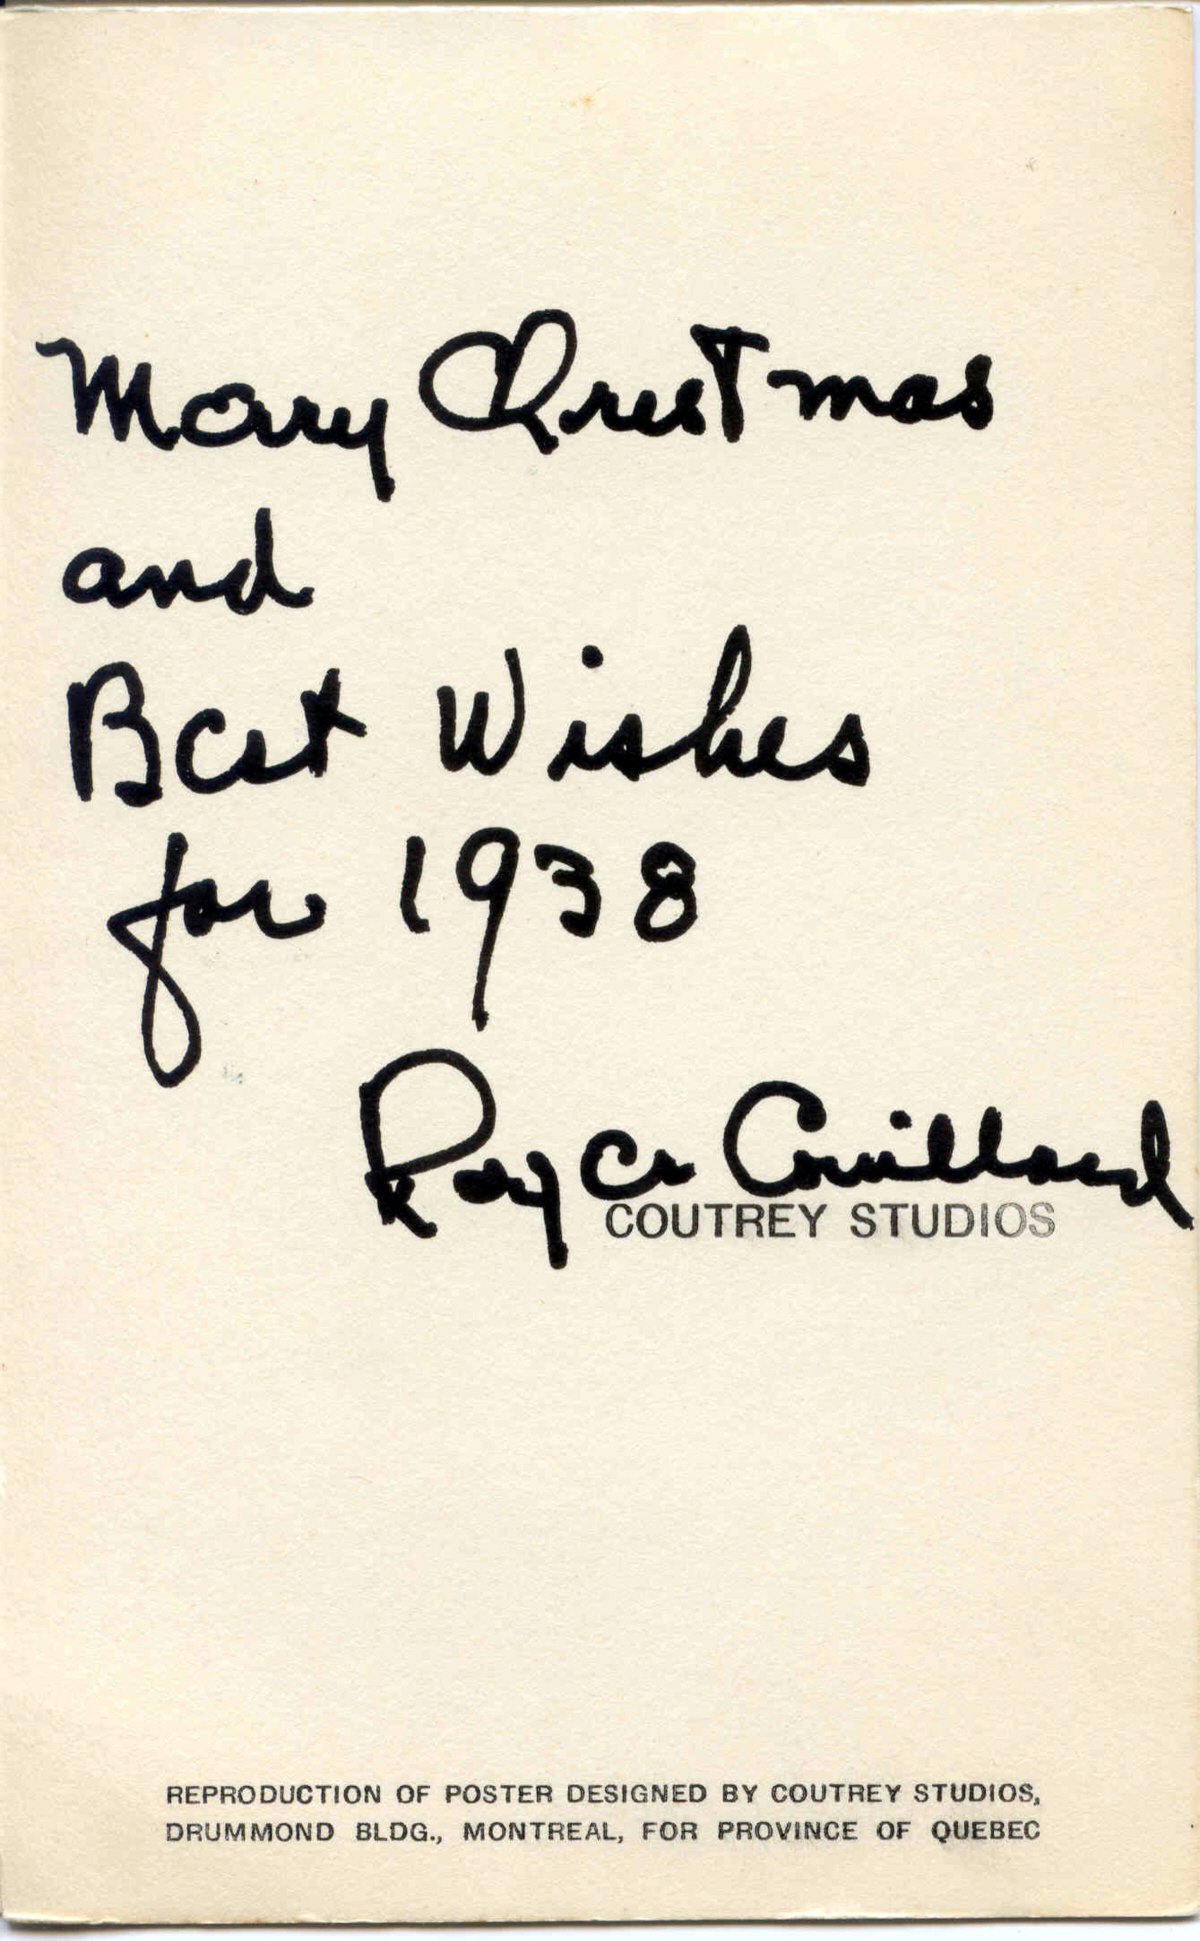 Merry Christmas
and
Best Wishes
for 1938
COUTREY STUDIOS
REPRODUCTION OF POSTER DESIGNED BY COUTREY STUDIOS,
DRUMMOND BLDG., MONTREAL, FOR PROVINCE OF QUEBEC